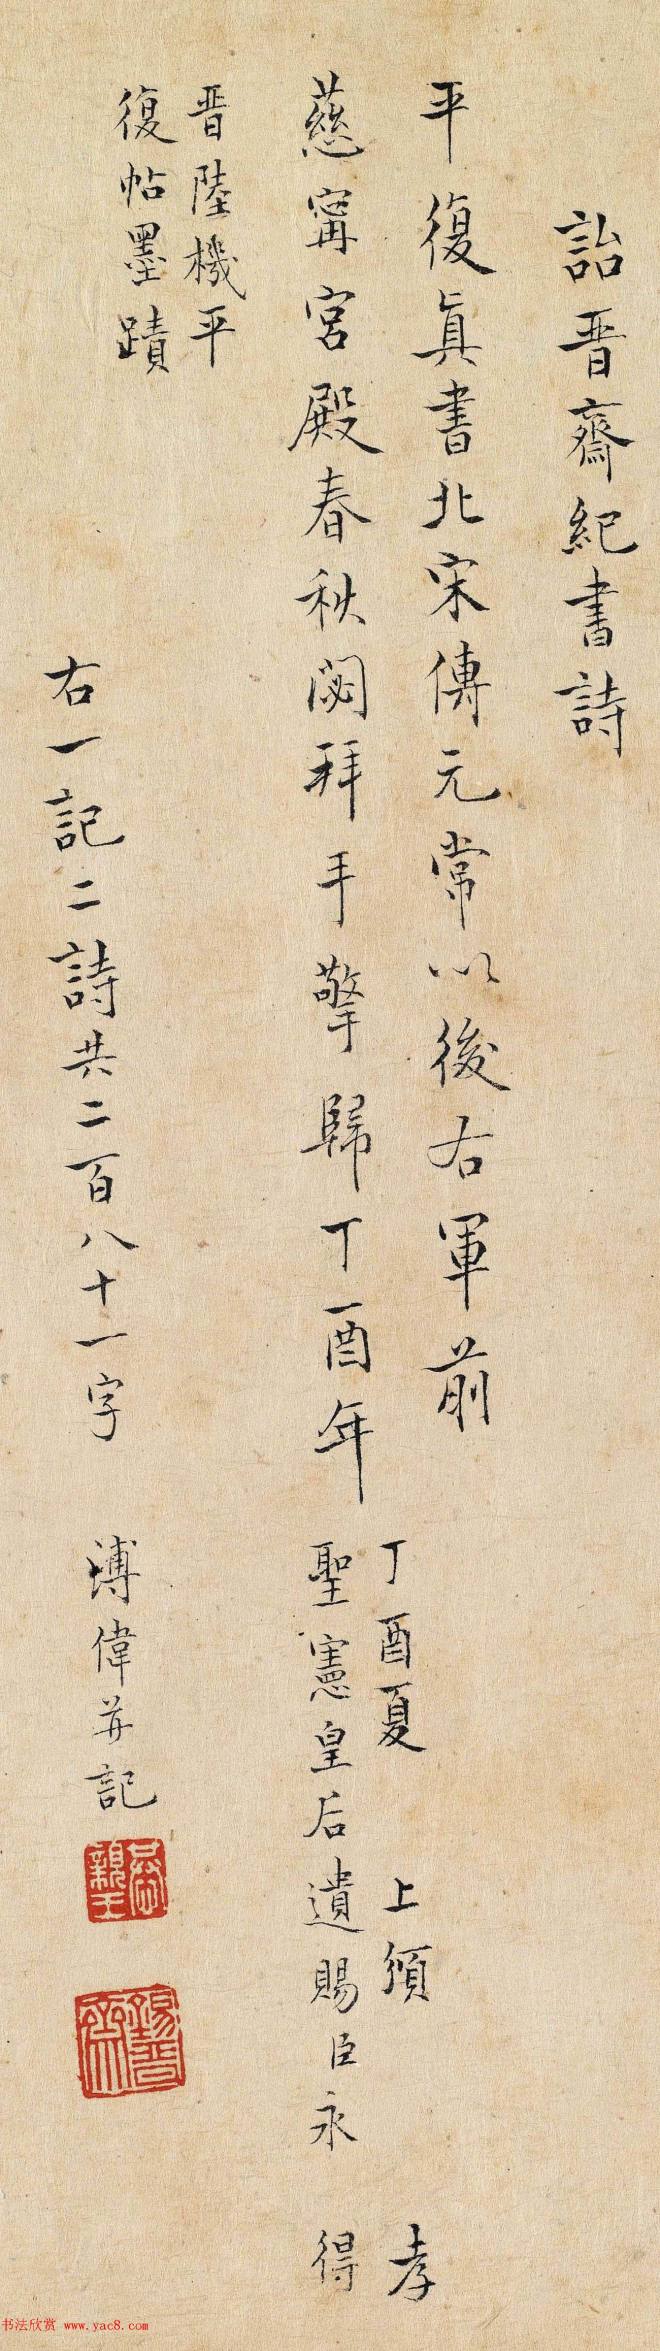 詒晋齋紀書詩
平復眞書北宋傳元常以後右軍前
慈甯宮殿春秋閟拜手擎歸丁酉年
丁酉夏 上頒 孝
聖憲皇后遺賜臣永 得
晋陸機平
復帖墨蹟
右一記二詩共二百八十一字 溥偉并記
恭親王
錫晉齋
书法欣赏 www.yac8.com